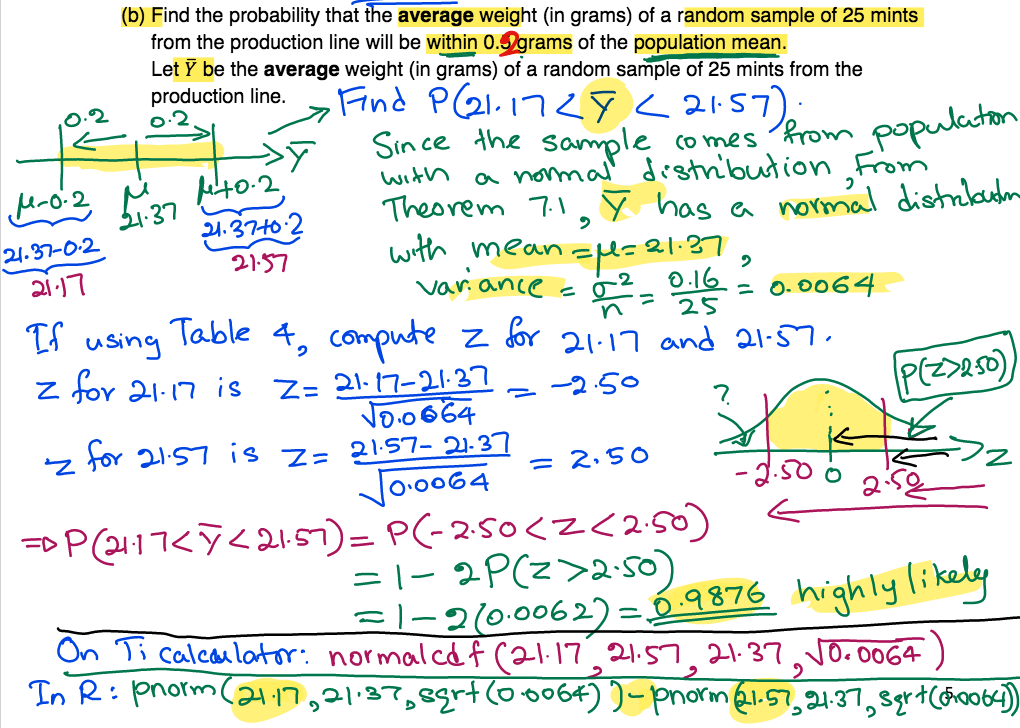 (b) Find the probability that the average weight (in grams) of a random sample of 25 mints
from the production line will be within 0.2 grams of the population mean.
Let Ȳ be the average weight (in grams) of a random sample of 25 mints from the
production line.
Find P(21.17 < Ȳ < 21.57).
0.2 0.2
Ȳ
μ-0.2 μ μ+0.2
21.37
21.37-0.2 21.37+0.2
21.17 21.57
Since the sample comes from population
with a normal distribution, from
Theorem 7.1, Ȳ has a normal distribution
with mean = μ = 21.37,
variance = σ²/n = 0.16/25 = 0.0064
If using Table 4, compute Z for 21.17 and 21.57.
Z for 21.17 is Z = (21.17-21.37)/√0.0064 = -2.50
Z for 21.57 is Z = (21.57-21.37)/√0.0064 = 2.50
P(Z>2.50)
?
-2.50 0 2.50 Z
⇒ P(21.17<Ȳ<21.57) = P(-2.50<Z<2.50)
= 1 - 2P(Z>2.50)
= 1 - 2(0.0062) = 0.9876 highly likely
On Ti calculator: normalcdf (21.17, 21.57, 21.37, √0.0064)
In R: pnorm(21.17, 21.37, sqrt(0.0064)) - pnorm(21.57, 21.37, sqrt(0.0064))
5